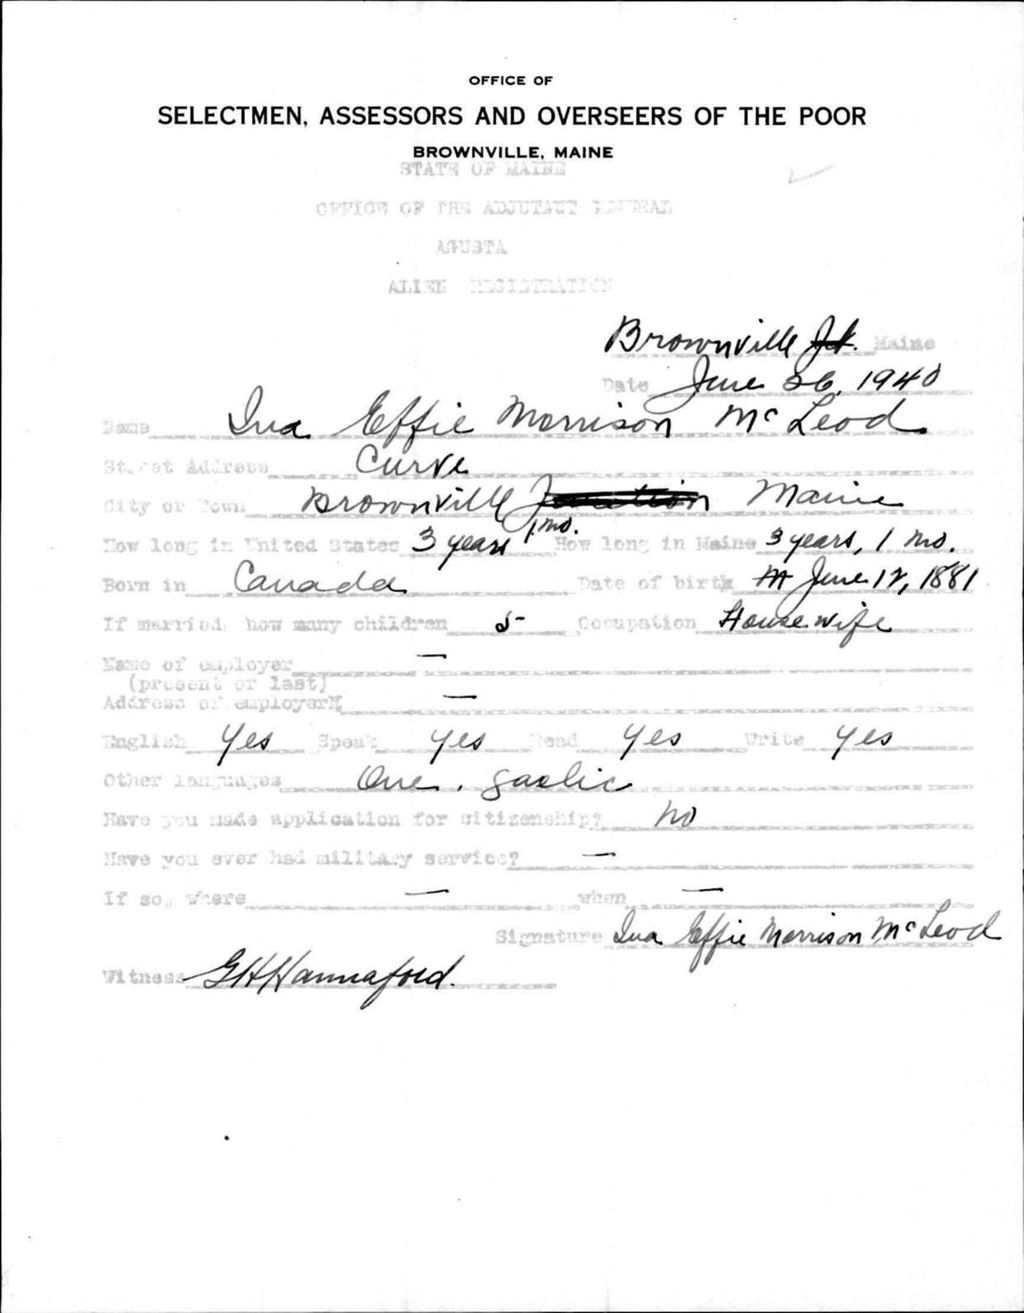 OFFICE OF
SELECTMEN, ASSESSORS AND OVERSEERS OF THE POOR
BROWNVILLE, MAINE
STATE OF MAINE
OFFICE OF THE ADJUTANT GENERAL
AGUSTA
ALIEN REGISTRATION
Brownville Jct. Maine
Date June 26, 1940
Name Ina Effie Morrison McLeod
Street Address Curve
City or Town Brownville Junction Maine
How long in United States 3 years 1 mo. How long in Maine 3 years, 1 mo.
Born in Canada Date of birth June 12, 1881
If married, how many children 5 Occupation Housewife
Name of employer —
(present or last)
Address of employer —
English Yes Speak Yes Read Yes Write Yes
Other languages One, gaelic
Have you made application for citizenship? No
Have you ever had military service? —
If so, where — when —
Signature Ina Effie Morrison McLeod
Witness G H Hannaford.